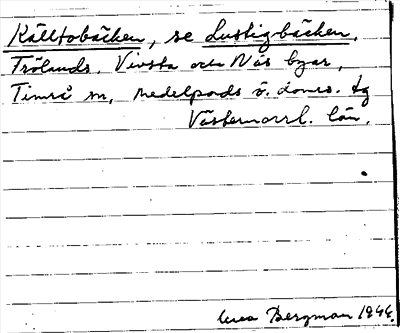 Källtobäcken, se Lustigbäcken,
Frölands, Vivsta och Näs byar,
Timrå sn, Medelpads ö. doms. tg
Västernorrl. län.
Bergman 1944.